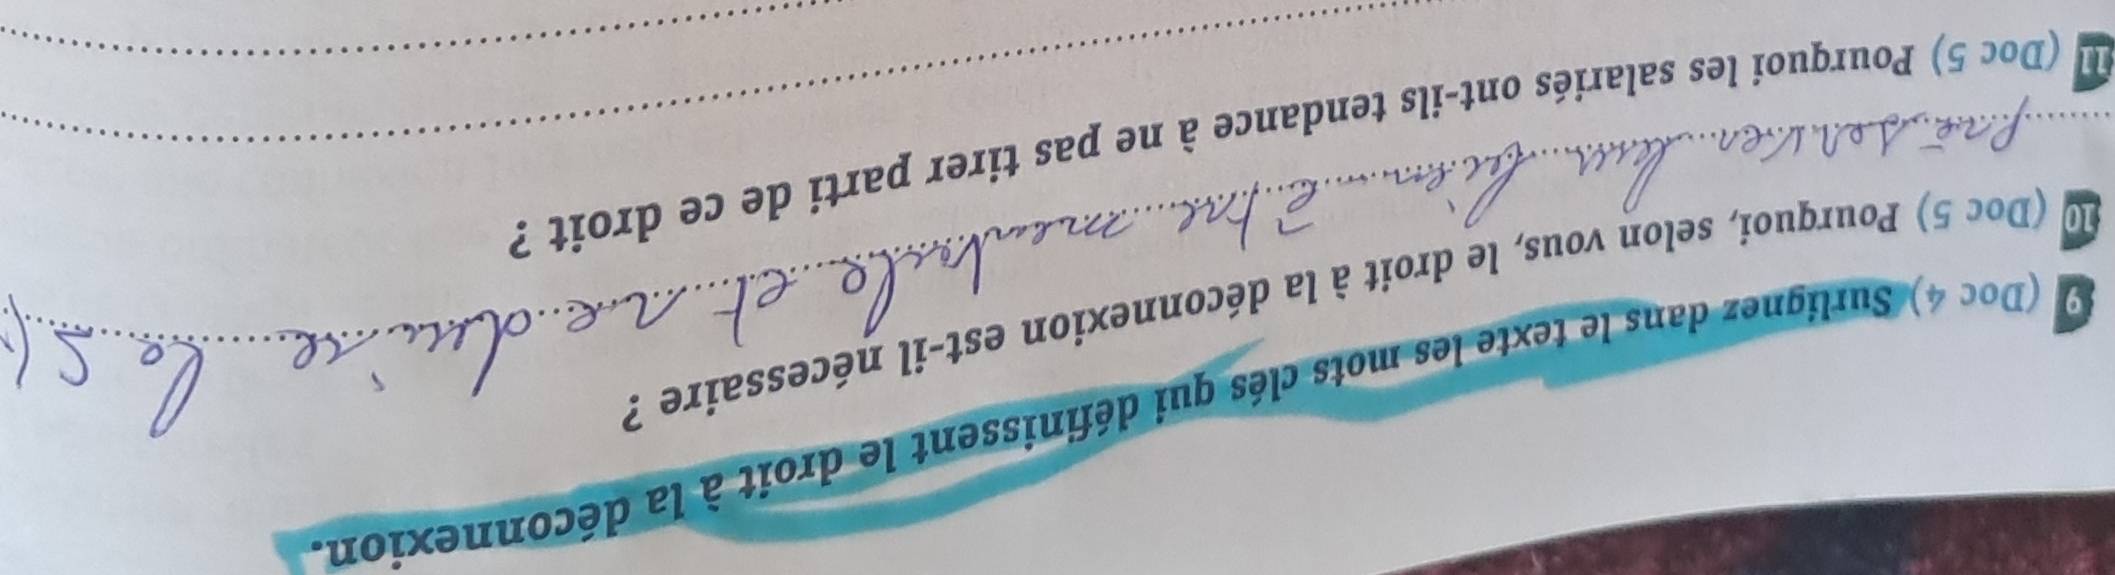 9 (Doc 4) Surlignez dans le texte les mots clés qui définissent le droit à la déconnexion.
10 (Doc 5) Pourquoi, selon vous, le droit à la déconnexion est-il nécessaire ?
préserver leur bien être mentale et réduire le s
11 (Doc 5) Pourquoi les salariés ont-ils tendance à ne pas tirer parti de ce droit ?